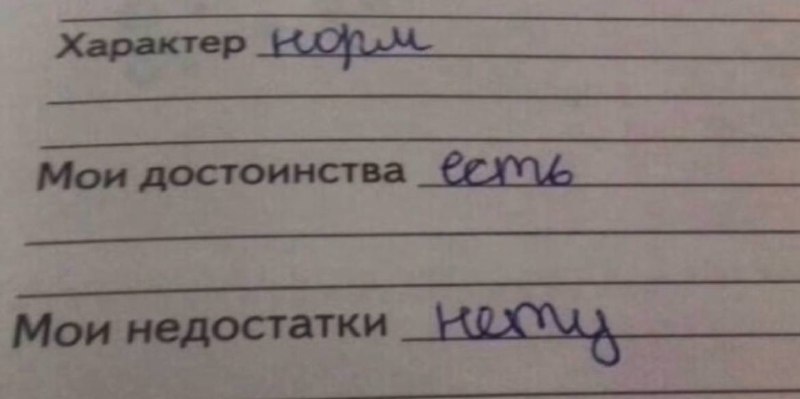 Характер норм
Мои достоинства есть
Мои недостатки нету